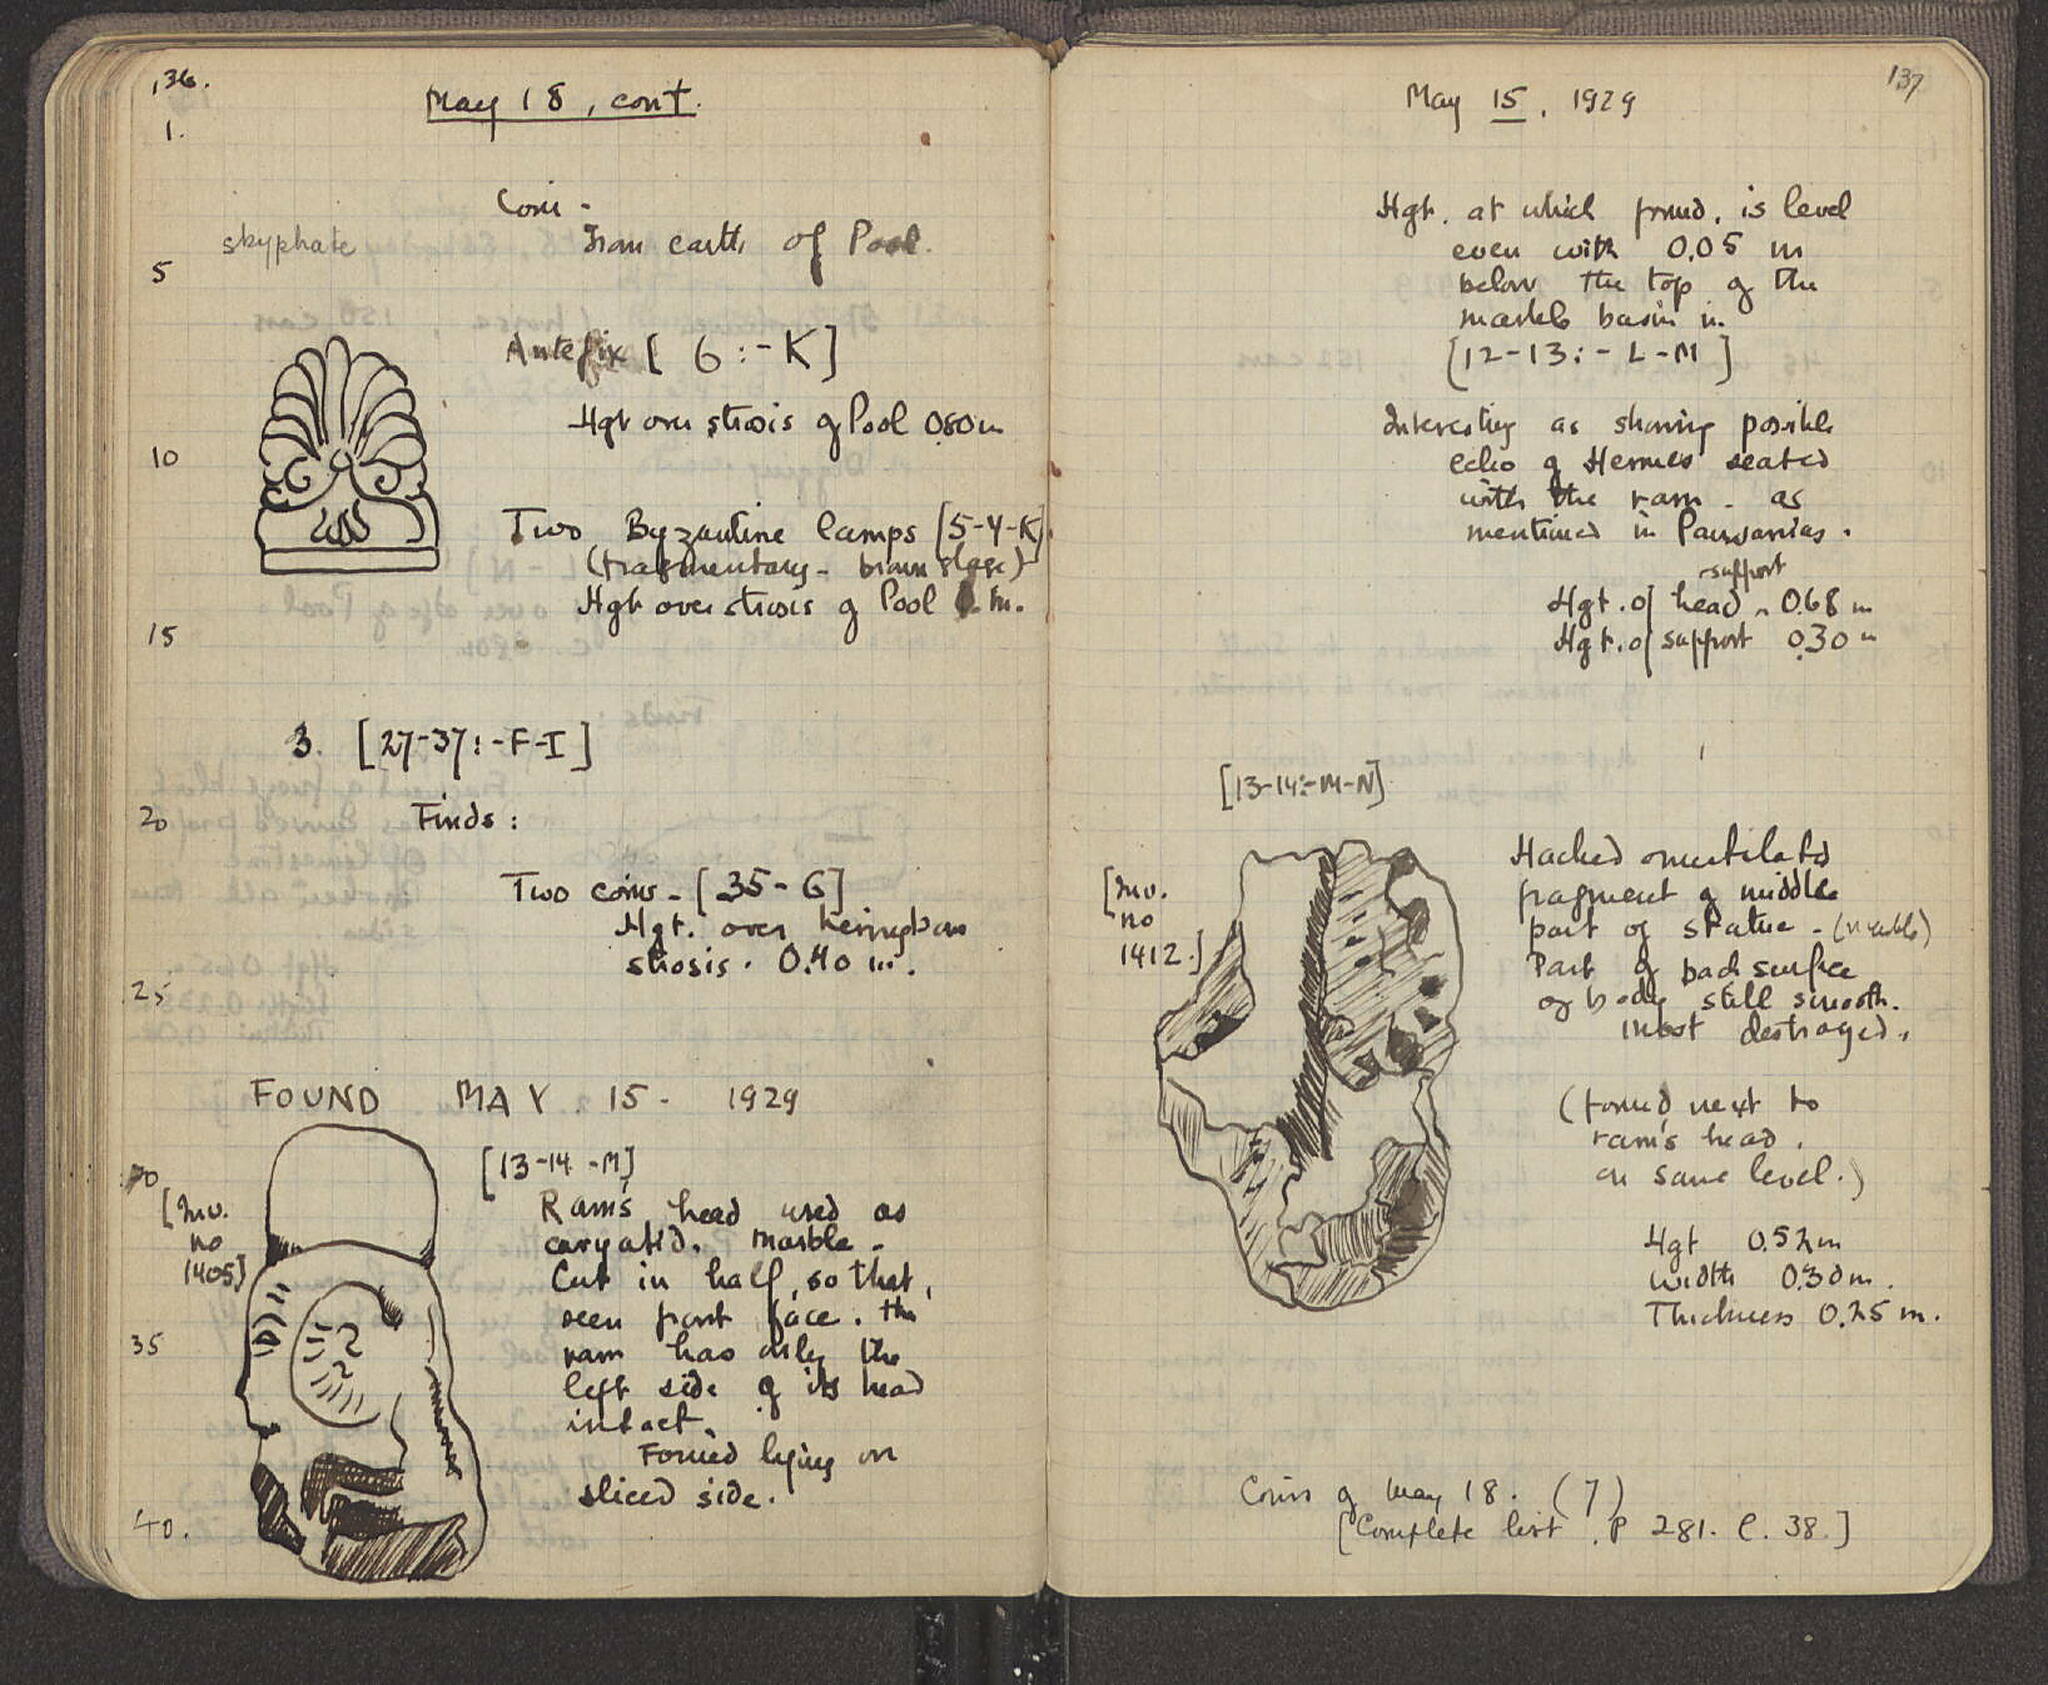 136.
May 18, cont.
1.
Coin -
skyphate
From earth of Pool.
5
Antefix [ 6 : - K ]
Hgt over strosis of Pool 0.80 m
10
Two Byzantine lamps [5-4-K]
(fragmentary - brown glaze)
Hgt over strosis of Pool m.
15
3. [27-37 : -F-I]
20
Finds :
Two coins - [35 - G]
Hgt. over herringbone
strosis. 0.40 m.
25
FOUND MAY 15 - 1929
[13-14 -M]
30
[Inv.
no
1405]
Ram's head used as
caryatid. Marble -
Cut in half, so that,
seen front face. the
ram has only the
35
left side of its head
intact.
Found lying on
sliced side.
40.
137
May 15, 1929
Hgt. at which found, is level
even with 0.05 m
below the top of the
marble basin in
[12-13 : - L-M]
Interesting as showing possible
echo of Hermes seated
with the ram - as
mentioned in Pausanias.
support
Hgt. of head 0.68 m
Hgt. of support 0.30 m
[13-14:-M-N]
[Inv.
no
1412.]
Hacked mutilated
fragment of middle
part of statue - (marble)
Part of back surface
of body still smooth.
most destroyed.
(found next to
ram's head,
on same level.)
Hgt 0.52 m
Width 0.30 m.
Thickness 0.25 m.
Coins of May 18. (7)
[Complete list. P 281. l. 38.]